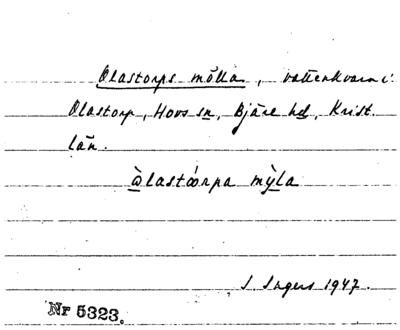 Olastorps mölla, vattenkvarn i
Olastorp, Hovs sn, Bjäre hd, Krist.
län.
òlastórpa mỳla
S. Ingers 1947.
Nr 5323.